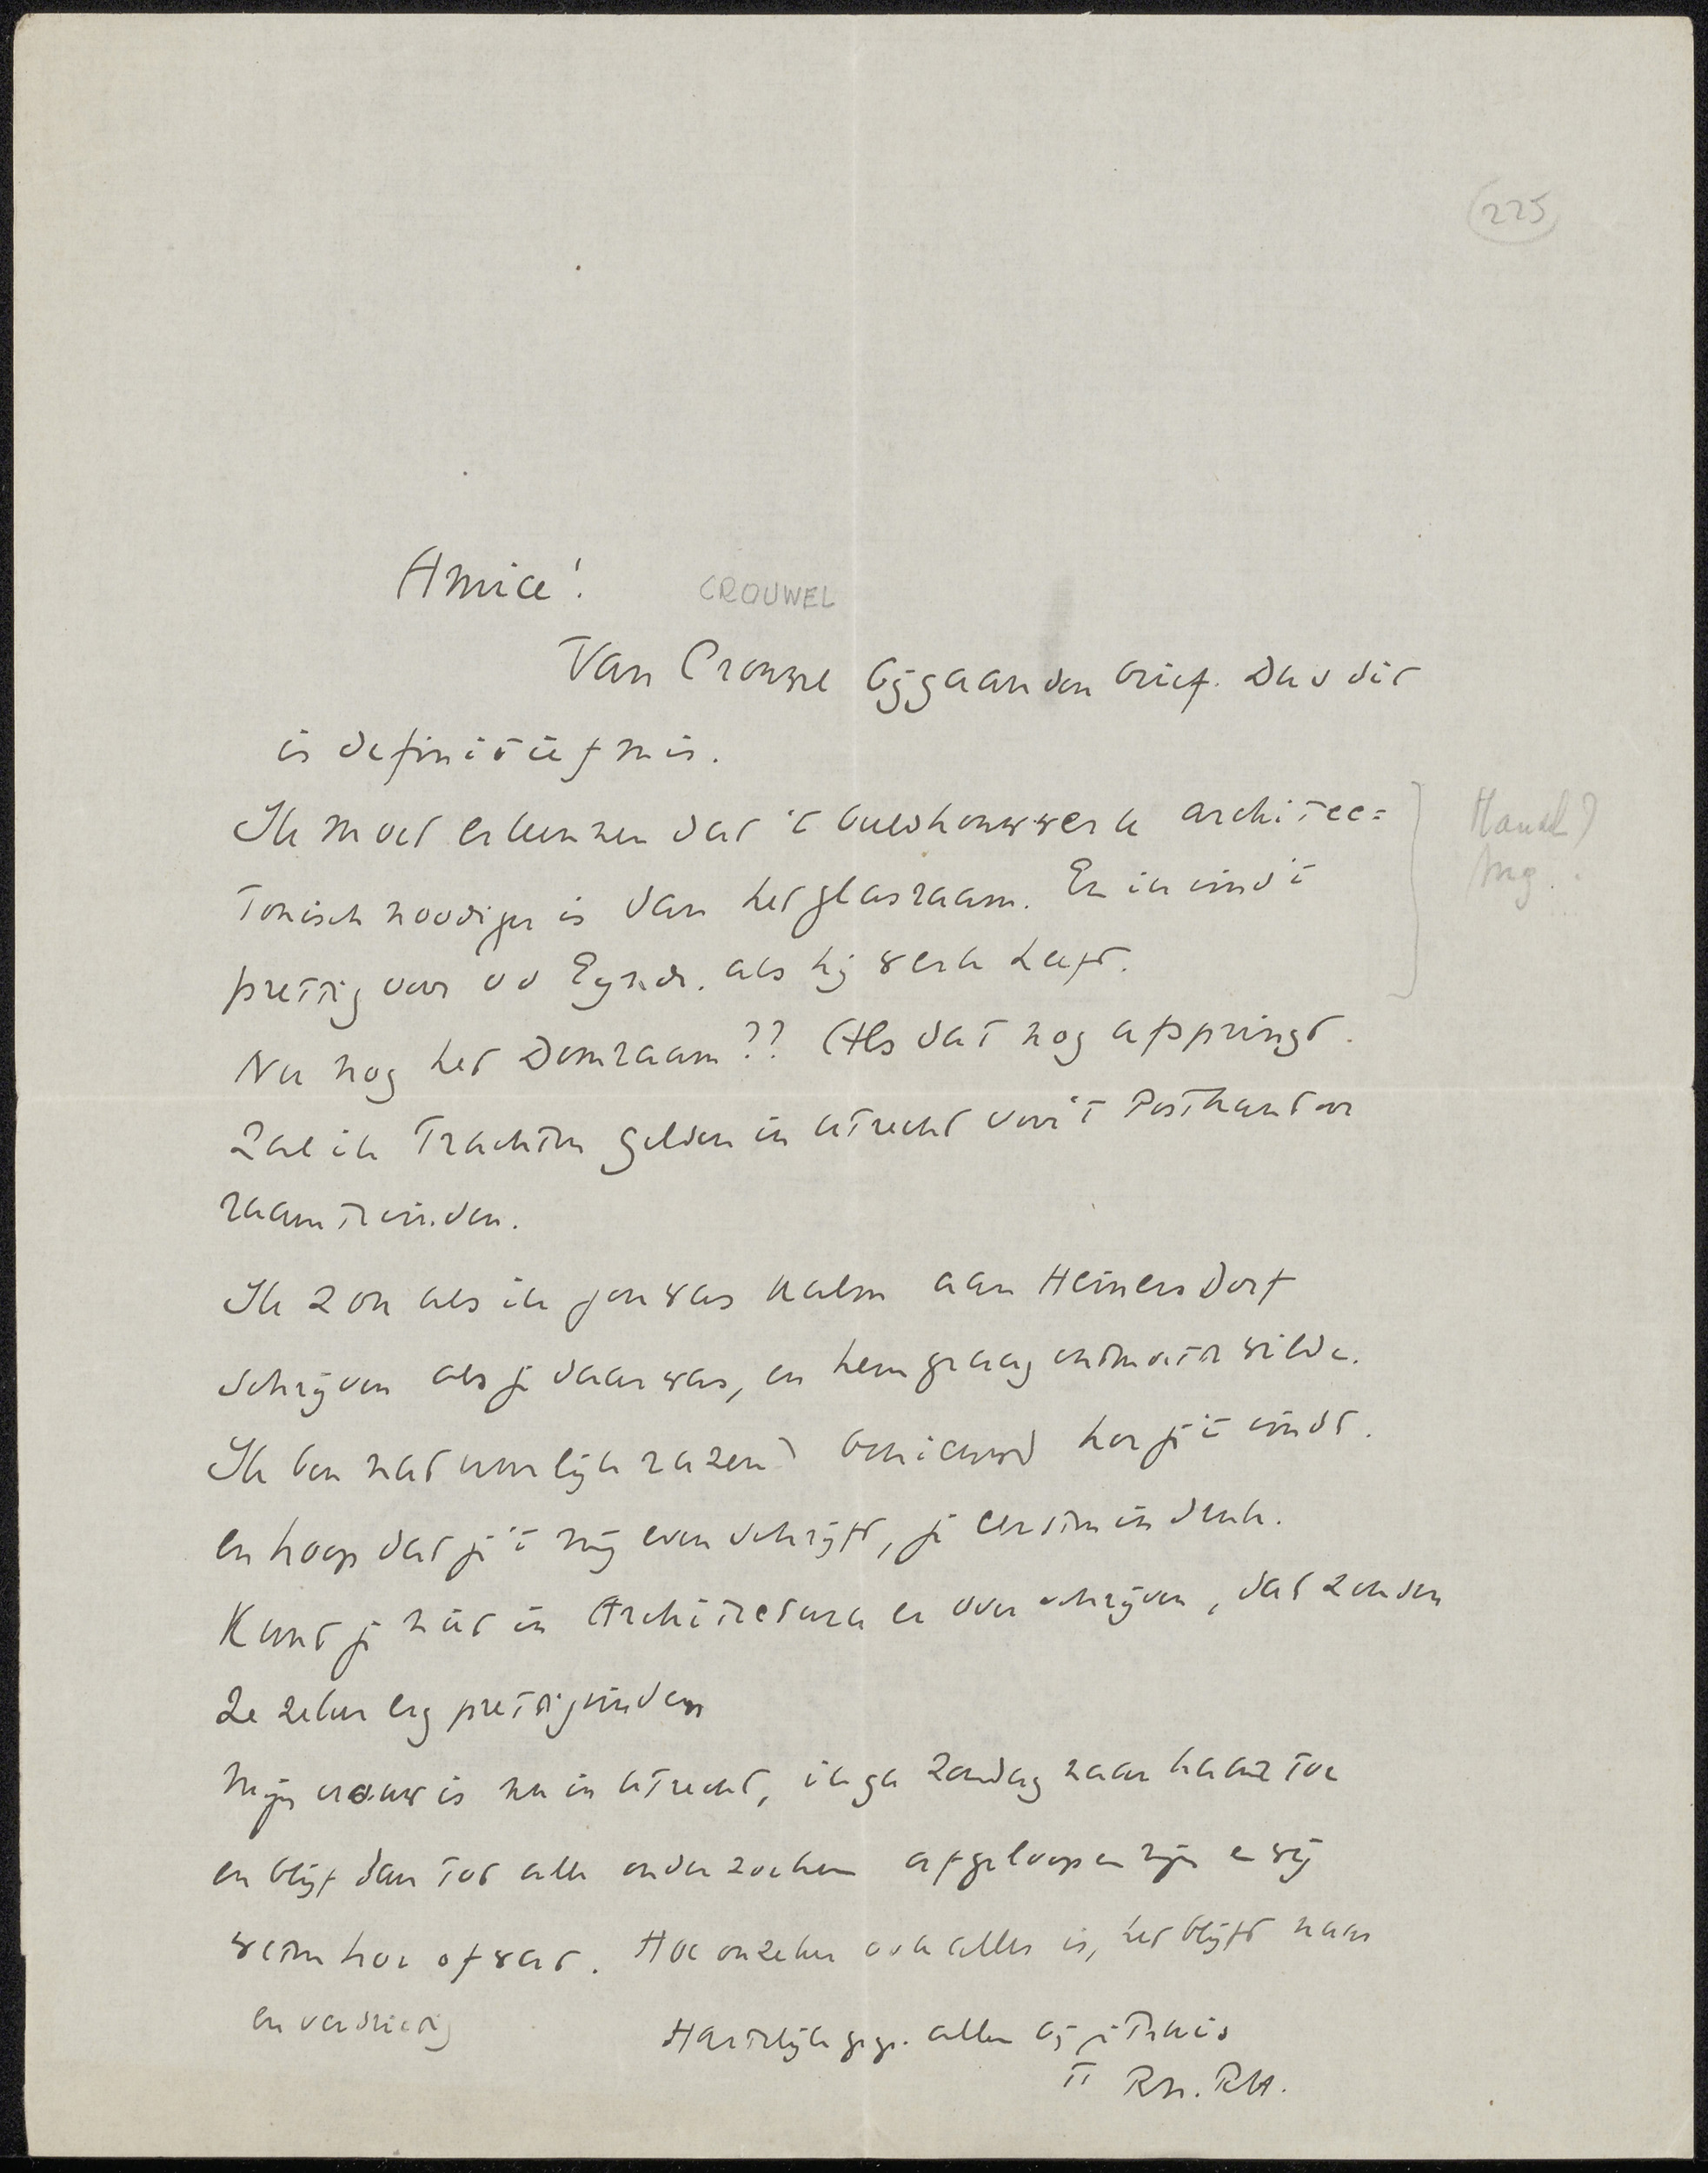 225
Amice!
CROUWEL
Van Crouwel bijgaanden brief. Dus dit
is definitief mis.
Ik moet erkennen dat 't beeldhouwwerk architec=
tonisch noodiger is dan het glasraam. En ik vind 't
prettig voor vd Eynde. als hij werk heeft.
Nu nog het Domraam?? Als dat nog afspringt.
Zal ik trachten gelden in Utrecht voor 't Postkantoor
raam te vinden.
Ik zou als ik jou was kalm aan Heinersdorf
schrijven als je daar was, en hem graag ontmoette wilde.
Ik ben natuurlijk razend benieuwd hoe je 't vindt.
en hoop dat je 't mij even schrijft, je eersten indruk.
Kunt je niet in Architectura er over schrijven, dat zouden
ze zeker erg prettig vinden
Mijn vrouw is nu in Utrecht, ik ga Zondag naar haar toe
en blijf dan tot alle onderzoeken afgeloopen zijn en wij
weten hoe of wat. Hoe onzeker ook alles is, het blijft naar
en verdrietig
Hartelijk gegr. allen bij je thuis
tt RN. RH.